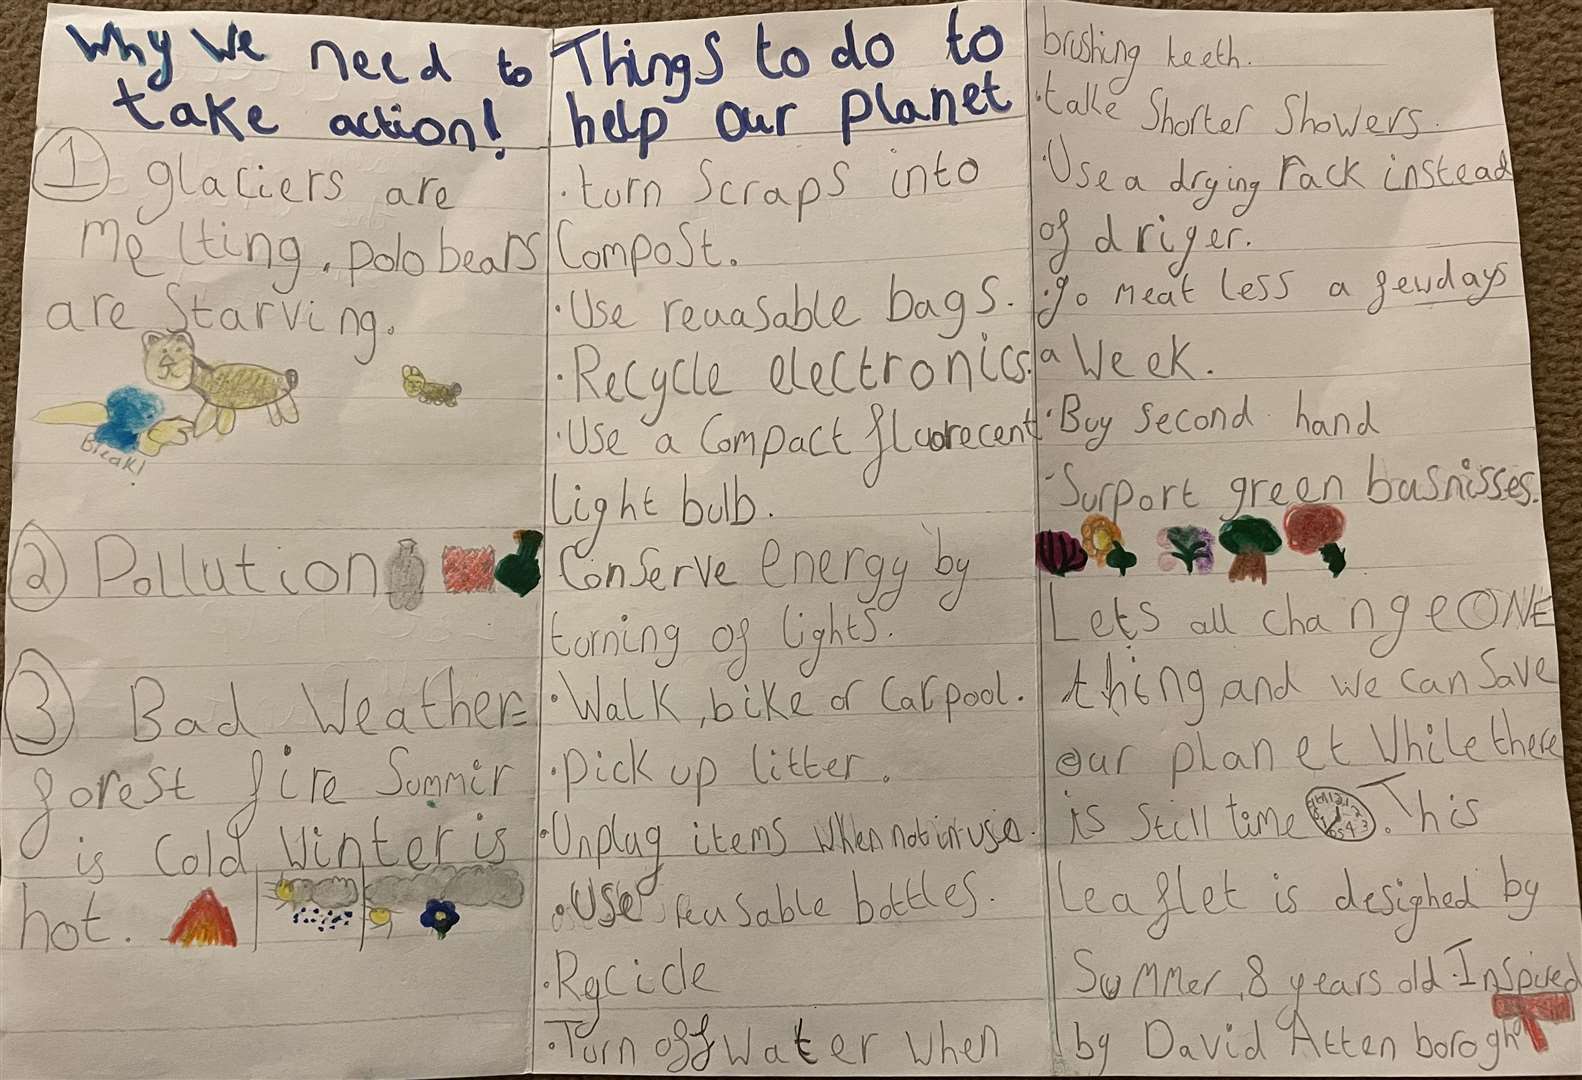 Why we need to
take action!
1 glaciers are
melting, polo bears
are starving.
Bleak!
2 Pollution
3 Bad Weather=
forest fire Summir
is Cold Winter is
hot.
Things to do to
help our planet
·turn Scraps into
Compost.
·Use reuasable bags.
·Recycle electronics.
·Use a Compact fluorecent
light bulb.
Conserve energy by
torning of lights.
·Walk, bike or Carpool.
·pick up litter.
·Unplug items when not in use.
·Use reusable bottles.
·Recicle
·Turn off water when
brushing teeth.
·take Shorter Showers.
·Use a drying rack instead
of driger.
·go meat less a few days
a Week.
·Buy second hand
·Surport green basnisses.
Lets all change ONE
thing and we can Save
our planet While there
is still time. This
leaflet is desighed by
Summer, 8 years old. Inspired
by David Atten borogh